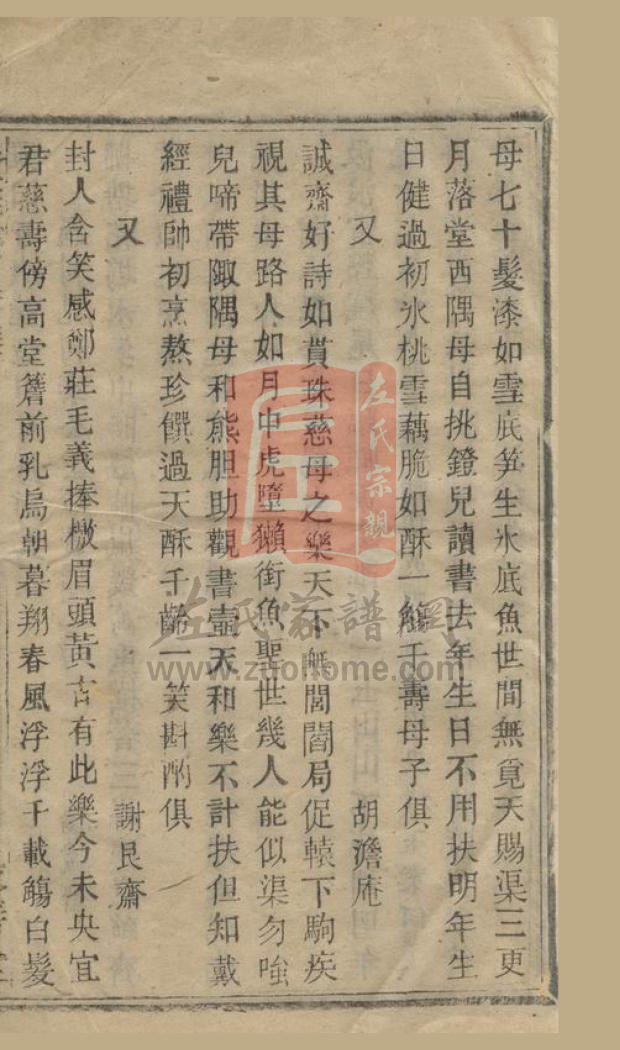 母七十髮漆如雪底笋生氷底魚世間無覓天賜渠三更
月落堂西隅母自挑鐙兒讀書去年生日不用扶明年生
日健過初氷桃雪藕脆如酥一觴千壽母子俱
又 胡澹庵
誠齋好詩如貫珠慈母之樂天下無閭閻局促轅下駒疾
視其母路人如月中虎墮獺銜魚聖世幾人能似渠勿嗤
兒啼帶陬隅母和熊胆助觀書壷天和樂不計扶但知戴
經禮帥初烹熬珍饌過天酥千齡一笑斟酌俱
又 謝艮齋
封人含笑感鄭莊毛義捧檄眉頭黃古有此樂今未央宜
君慈壽傍高堂簷前乳烏朝暮翔春風浮浮千載觴白髮
左氏宗親
左氏家譜網
www.zuohome.com